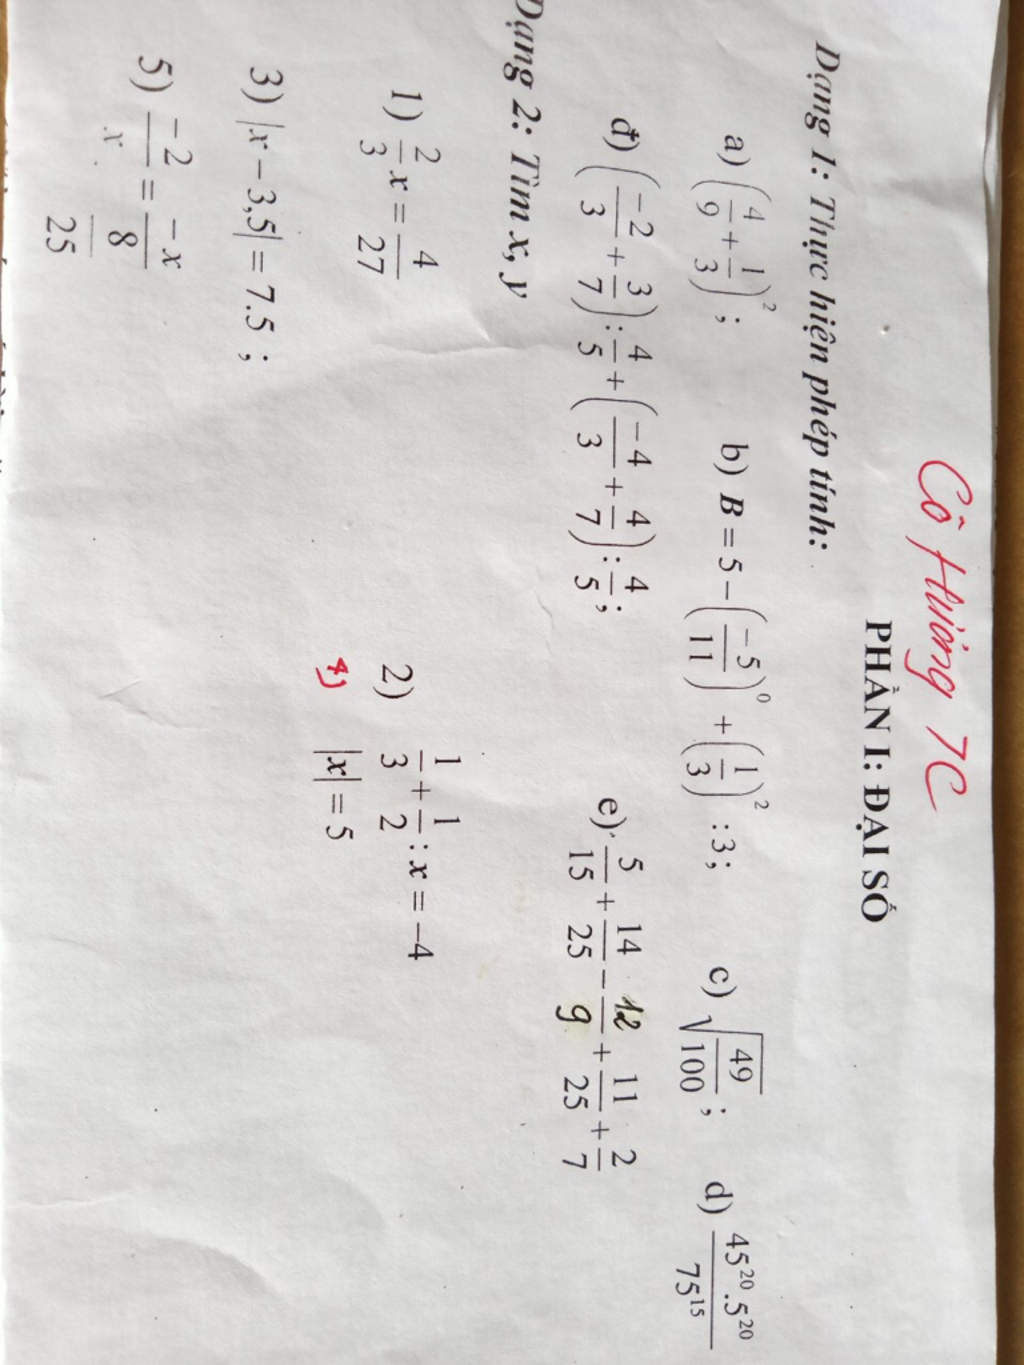 Cô Hương 7C
PHẦN I: ĐẠI SỐ
Dạng 1: Thực hiện phép tính:
a) (4/9 + 1/3)²; b) B = 5 − (−5/11)⁰ + (1/3)² :3; c) √(49/100); d) 45²⁰.5²⁰/75¹⁵
đ) (−2/3 + 3/7) : 4/5 + (−4/3 + 4/7) : 4/5; e) 5/15 + 14/25 − 12/9 + 11/25 + 2/7
Dạng 2: Tìm x, y
1) 2/3 x = 4/27 2) 1/3 + 1/2 : x = −4
3) |x − 3,5| = 7.5 ; 4) |x| = 5
5) −2/x = −x/(8/25)